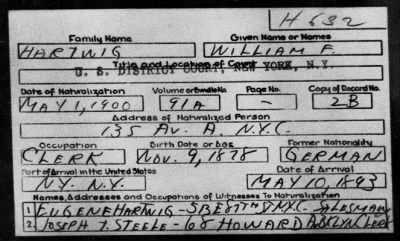 H 632
Family Name Given Name or Names
HARTWIG WILLIAM F.
Title and Location of Court
U. S. DISTRICT COURT, NEW YORK, N.Y.
Date of Naturalization Volume or Bundle No. Page No. Copy of Record No.
MAY 1, 1900 91A - 2B
Address of Naturalized Person
135 AV. A. N.Y.C.
Occupation Birth Date or Age Former Nationality
CLERK NOV. 9, 1878 GERMAN
Port of Arrival in the United States Date of Arrival
N.Y. N.Y. MAY 10, 1893
Names, Addresses and Occupations of Witnesses To Naturalization
1 EUGENE HARTWIG - N.Y.C. - SALESMAN
2. JOSEPH T. STEELE - 68 HOWARD CLERK